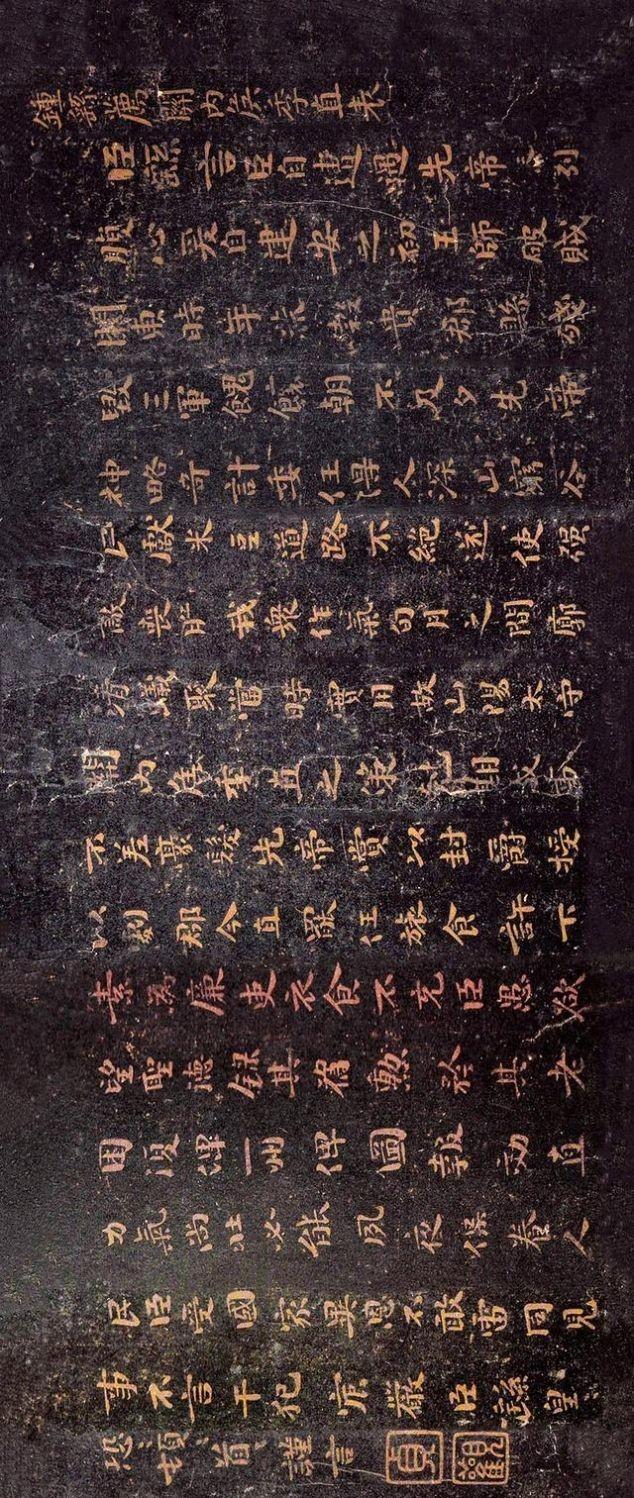 鍾繇薦關內侯季直表
臣繇言臣自遭遇先帝忝列
腹心爰自建安之初王師破賊
關東時年荒穀貴郡縣殘
毀三軍餽饟朝不及夕先帝
神略奇計委任得人深山窮谷
民獻米豆道路不絕遂使強
敵喪膽我眾作氣旬月之間廓
清蟻聚當時實用故山陽太守
關內侯季直之策剋期成事
不差豪髮先帝賞以封爵授
以劇郡今直罷任旅食許下
素為廉吏衣食不充臣愚欲
望聖德錄其舊勳矜其老
困復俾一州俾圖報效直
力氣尚壯必能夙夜保養人
民臣受國家異恩不敢雷同見
事不言干犯宸嚴臣繇皇
恐頓首謹言
貞觀